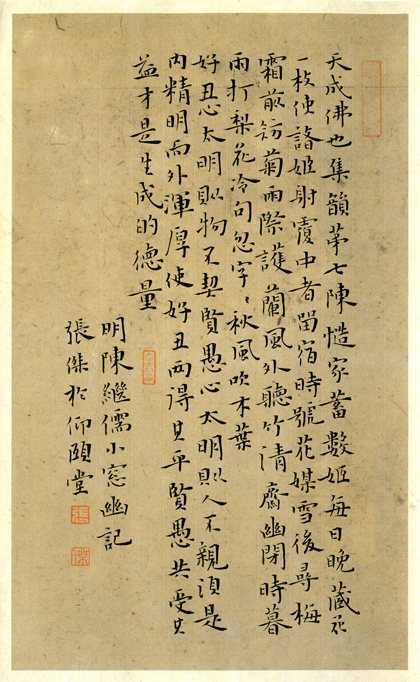 天成佛也集韻第七陳慥家蓄數姬每日晚藏花
一枝使諸姬射覆中者留宿時號花媒雪後尋梅
霜前訪菊雨際護蘭風外聽竹清齋幽閉時暮
雨打梨花冷句忽字〻秋風吹木葉
好丑心太明則物不契賢愚心太明則人不親須是
内精明而外渾厚使好丑兩得其平賢愚共受其
益才是生成的德量
明陳繼儒小窓幽記
張傑於仰頤堂
張
傑